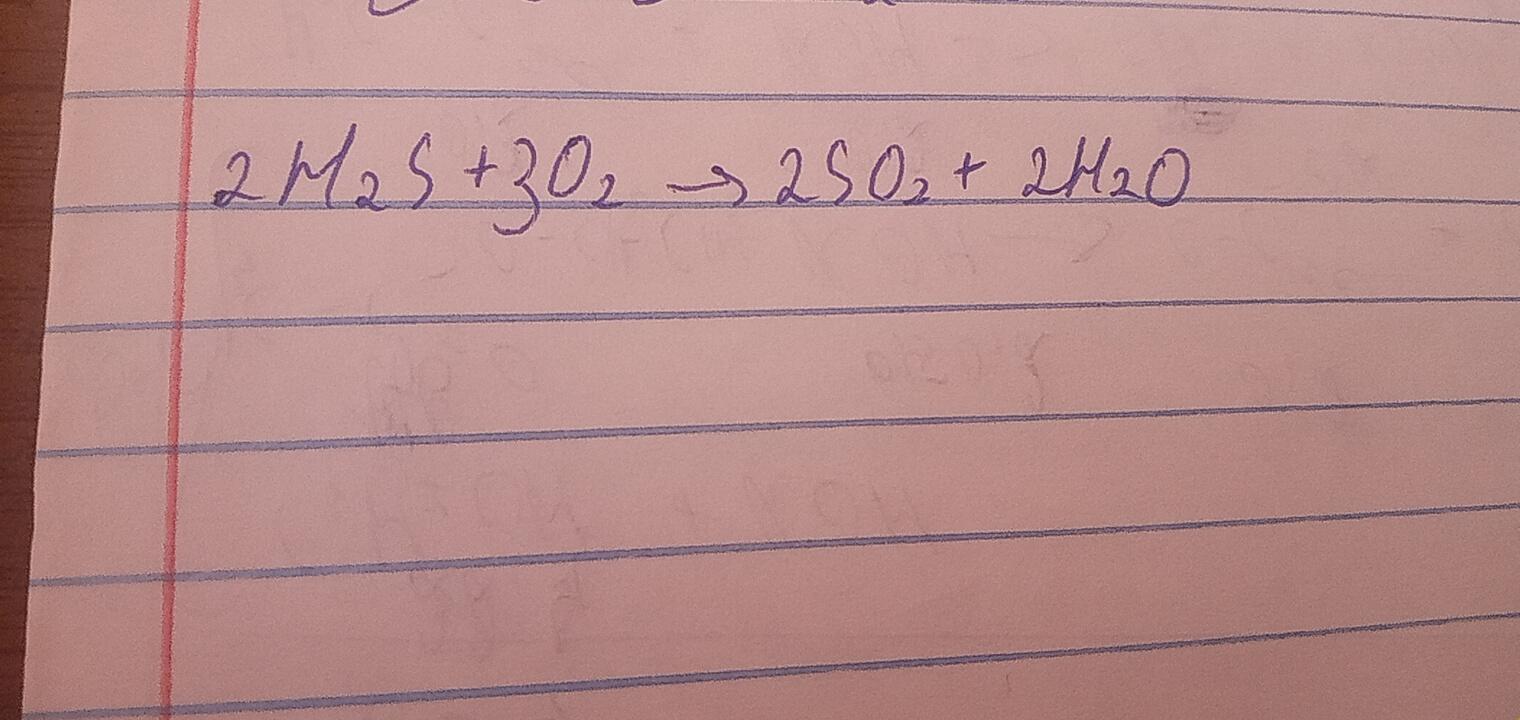 2H₂S+3O₂ → 2SO₂+ 2H₂O